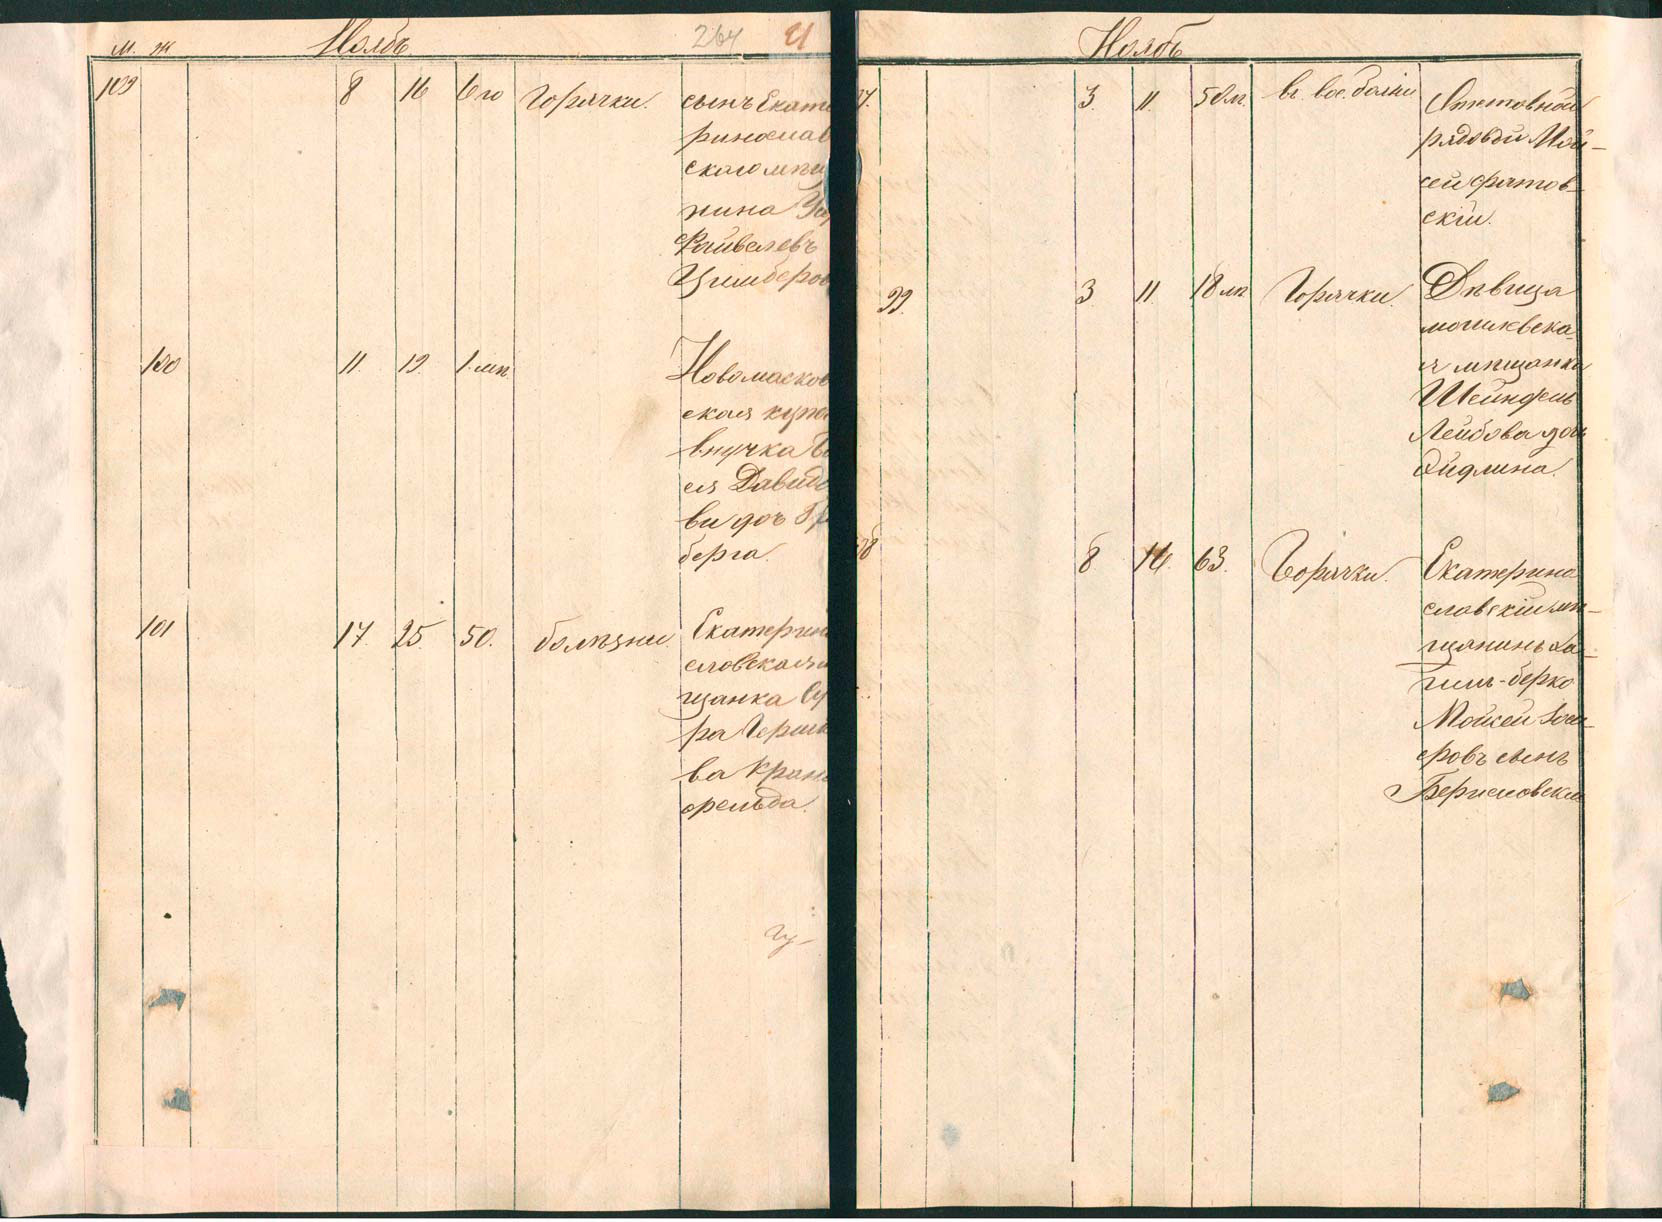 м. ж Ноябь 264 21
109 8 16 6 го Горячки. сынъ Екате
ринослав
скаго мѣщ
нина
Файвелевъ
Цимберов
100 11 19 1. лѣт Новомосков
ская купе
внучка
ся Давидо
ви доч
берга.
101 17. 25. 50. болѣзни. Екатерин
ославская м
щанка Су
ра Гершк
ва Кран
фельда.
Ноябь
3. 11. 50 л. в. вое. болни Отставной
рядовой Мой-
сей Фатов-
скій.
99. 3 11. 18 лѣ Горячки. Дѣвица
могилевска-
я мѣщанка
Шейндель
Лейбова доч
Эйдлина.
98 8 16. 63. Горячки. Екатерино
славскій мѣ-
щанинъ
-Берко
Мойсей
ровъ сынъ
Бериславскій